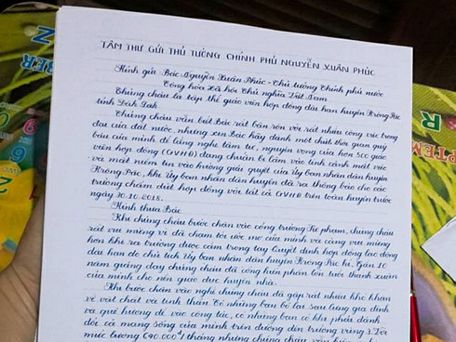 TÂM THƯ GỬI THỦ TƯỚNG CHÍNH PHỦ NGUYỄN XUÂN PHÚC
Kính gửi Bác Nguyễn Xuân Phúc - Thủ tướng Chính phủ nước
Cộng hòa Xã hội Chủ nghĩa Việt Nam
Chúng cháu là tập thể giáo viên hợp đồng dôi dư huyện Krông Pắc
tỉnh Đắk Lắk
Chúng cháu vẫn biết Bác rất bận rộn với rất nhiều công việc trọng
đại của đất nước, nhưng xin Bác hãy dành một chút thời gian quý
báu của mình để lắng nghe tâm tư, nguyện vọng của hơn 500 giáo
viên hợp đồng (GVHĐ) đang chuẩn bị lâm vào tình cảnh mất việc
và mất niềm tin vào hướng giải quyết của Ủy ban nhân dân huyện
Krông Pắc, khi Ủy ban nhân dân huyện đã ra thông báo cho các
trường chấm dứt hợp đồng với tất cả GVHĐ trên toàn huyện trước
ngày 30.10.2018.
Kính thưa Bác
Khi chúng cháu bước chân vào cổng trường Sư phạm, chúng cháu
rất vui mừng vì đã chạm tới ước mơ của mình và càng vui mừng
hơn khi ra trường được cầm trong tay Quyết định hợp đồng lao động
dài hạn do chủ tịch Ủy ban nhân dân huyện Krông Pắc kí. Gần 10
năm giảng dạy chúng cháu đã cống hiến phần lớn tuổi thanh xuân
của mình cho nền giáo dục huyện nhà.
Khi bước chân vào nghề chúng cháu đã gặp rất nhiều khó khăn
về vật chất và tinh thần. Có những bạn bỏ lại sau lưng gia đình
và quê hương đi vào công tác, có những bạn có khi phải đánh
đổi cả mạng sống của mình trên đường đến trường vùng 3. Với
mức lương 640.000đ/tháng nhưng chúng cháu vẫn